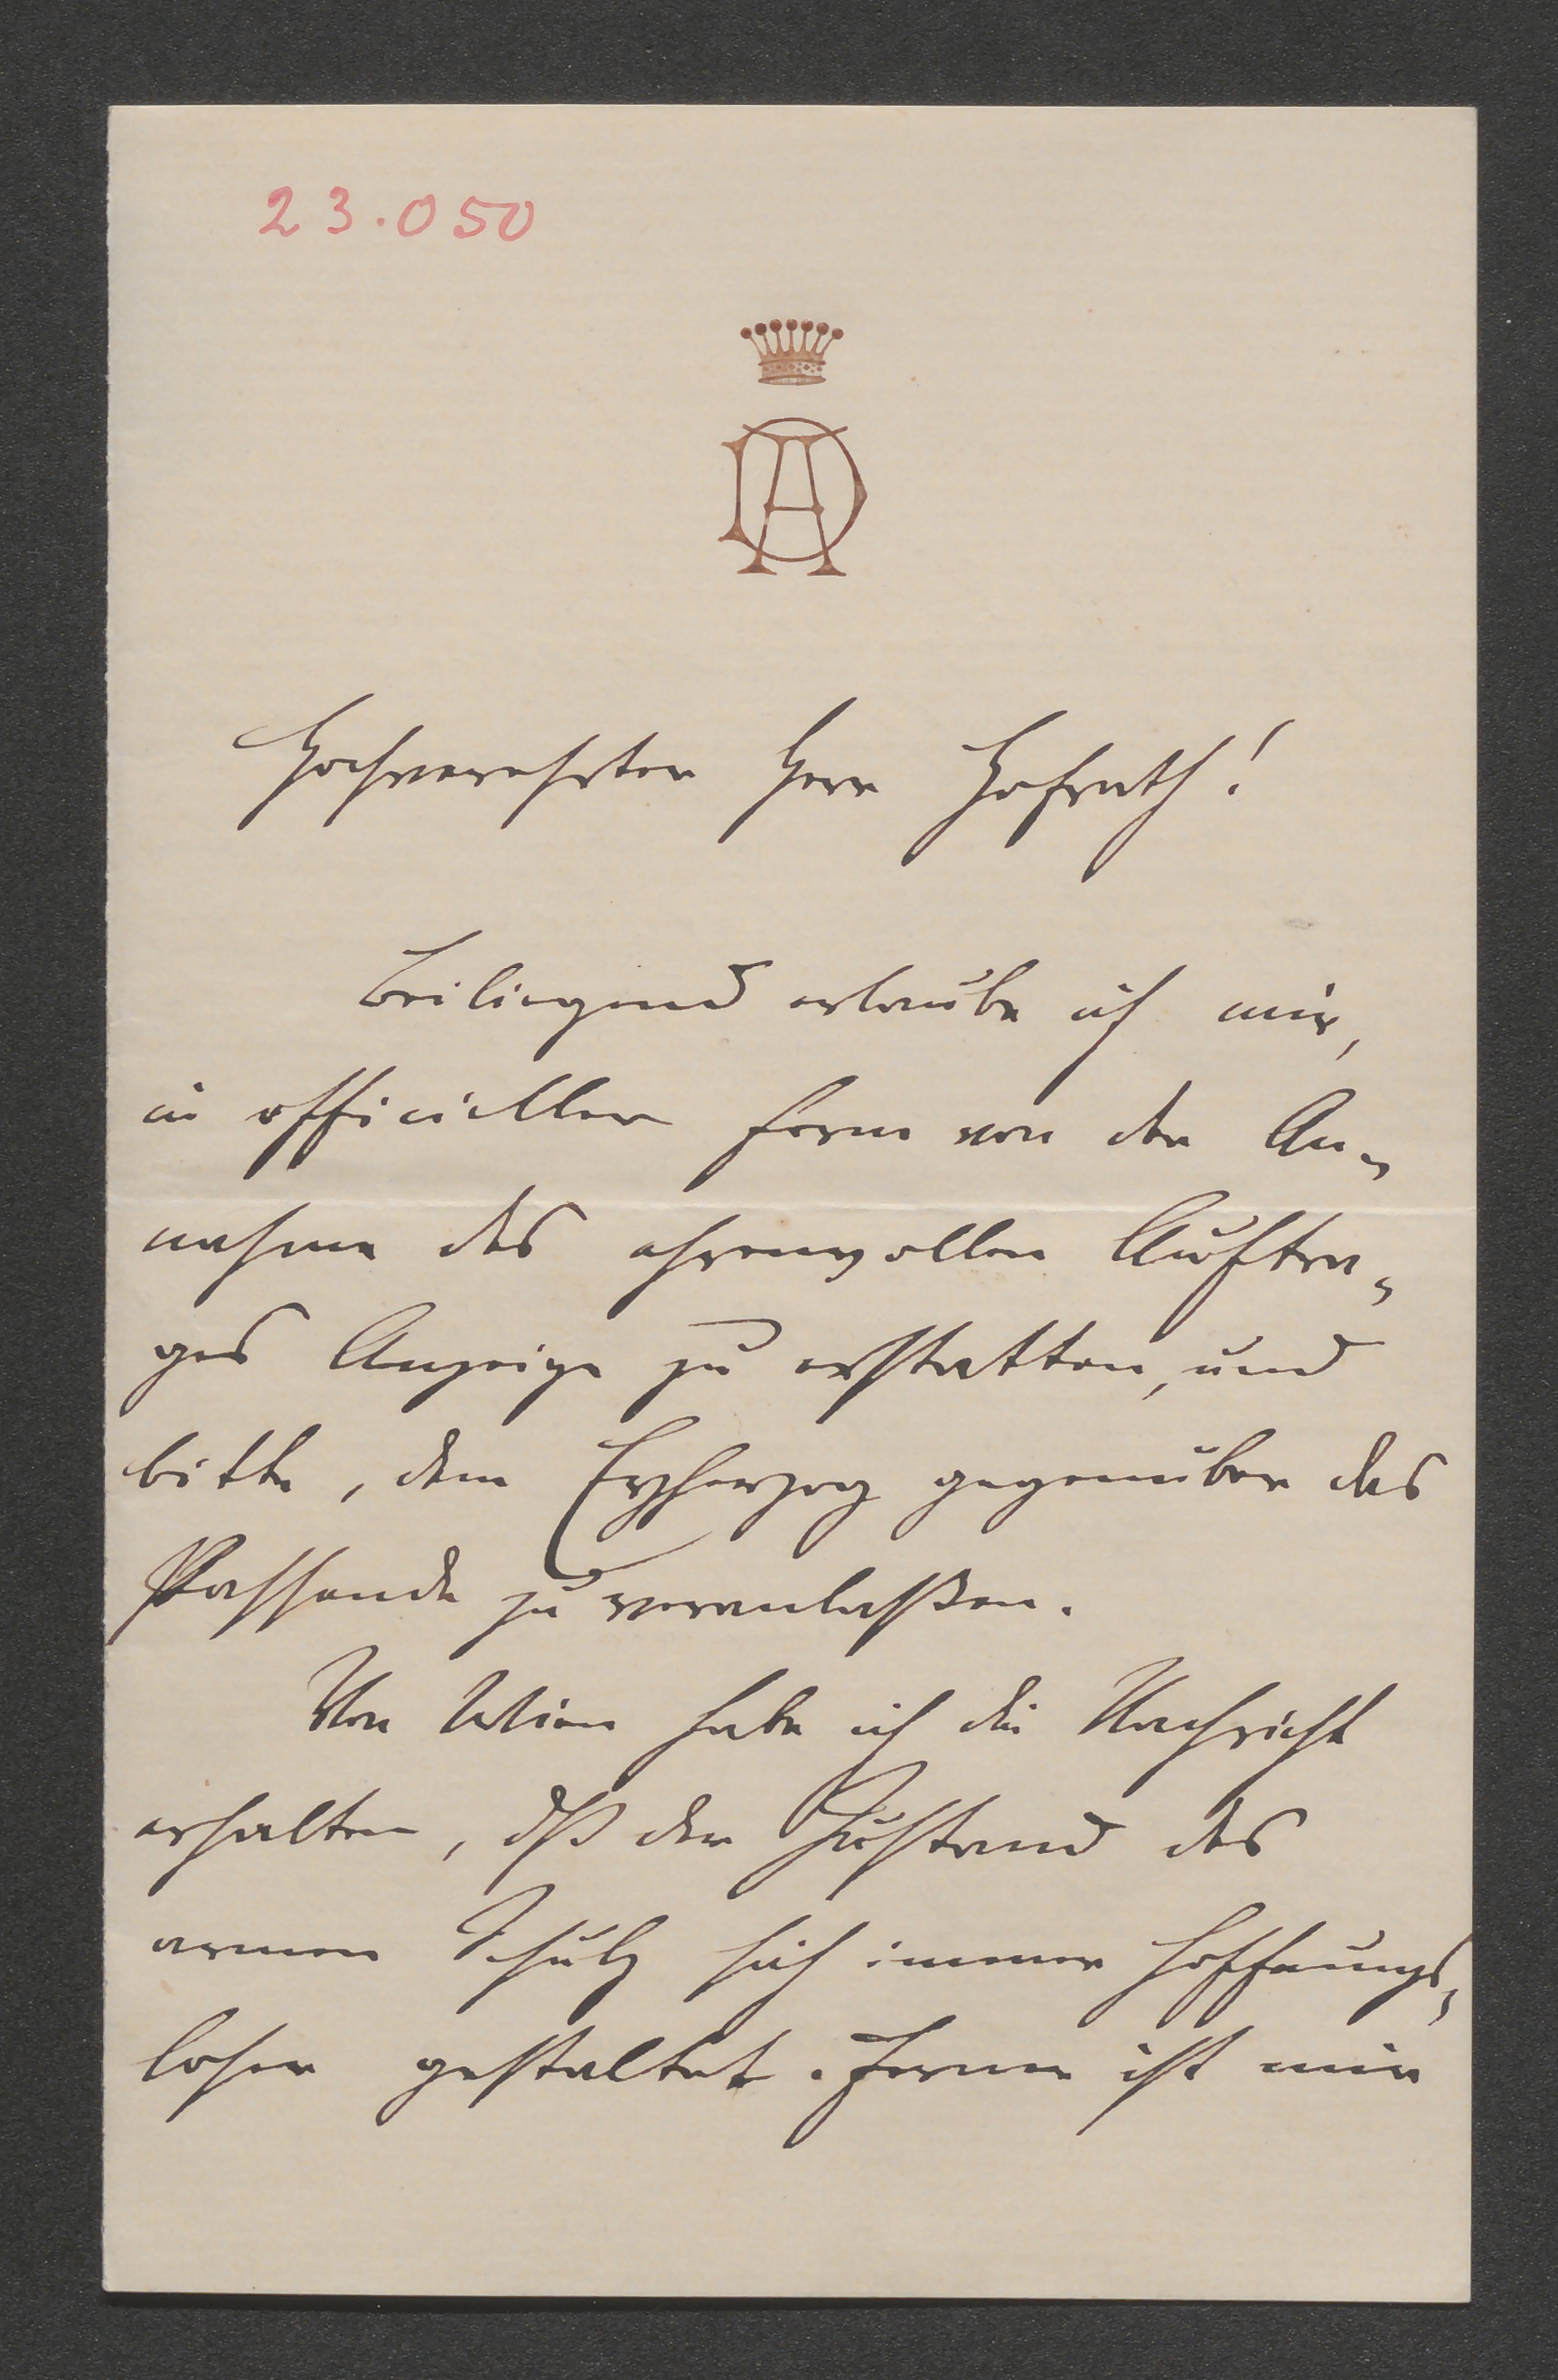 23.050
AD
Hochverehrter Herr Hofrath!
Beiliegend erlaube ich mir,
in officieller Form von der An-
nahme des ehrenvollen Auftra-
ges Anzeige zu erstatten, und
bitte, dem Erzherzog gegenüber das
Passende zu veranlaßen.
Von Wien habe ich die Nachricht
erhalten, dß der Zustand des
armen Schulz sich immer hoffnungs-
loser gestaltet. Ferner ist mir